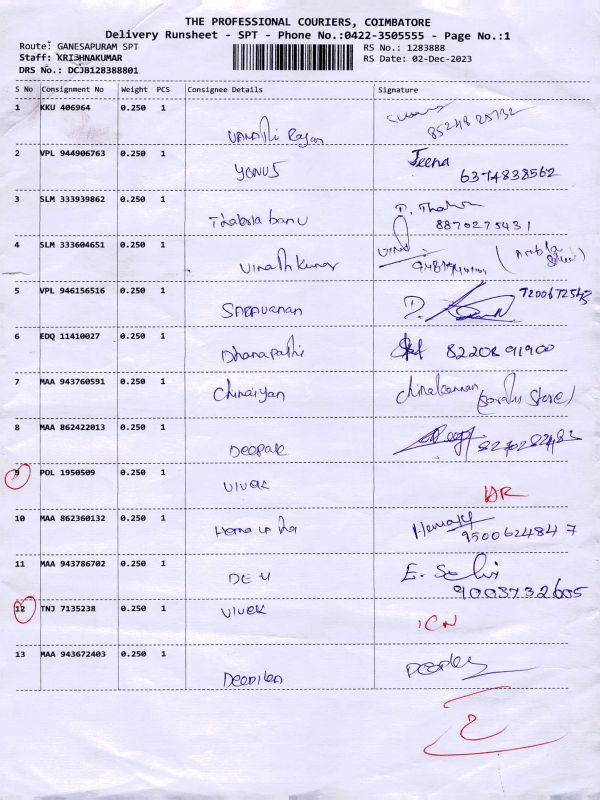 THE PROFESSIONAL COURIERS, COIMBATORE
Delivery Runsheet - SPT - Phone No.:0422-3505555 - Page No.:1
Route: GANESAPURAM SPT
RS No.: 1283888
Staff: KRISHNAKUMAR
RS Date: 02-Dec-2023
DRS No.: DCJB128388801
S No Consignment No Weight PCS Consignee Details Signature
1 KKU 406964 0.250 1
2 VPL 944906763 0.250 1 Jeena
YONUS 6374838562
3 SLM 333939862 0.250 1
Thabila banu 8870275431
4 SLM 333604651 0.250 1
Vinothkumar
5 VPL 946156516 0.250 1
SARAVANAN
6 EDQ 11410027 0.250 1
Dhanapathi 82208 91900
7 MAA 943760591 0.250 1
Chinaiyan
8 MAA 862422013 0.250 1
Deepak
9 POL 1950509 0.250 1
VIVEK
10 MAA 862360132 0.250 1
9500624847
11 MAA 943786702 0.250 1
9003732605
12 TNJ 7135238 0.250 1
VIVEK ICN
13 MAA 943672403 0.250 1
2